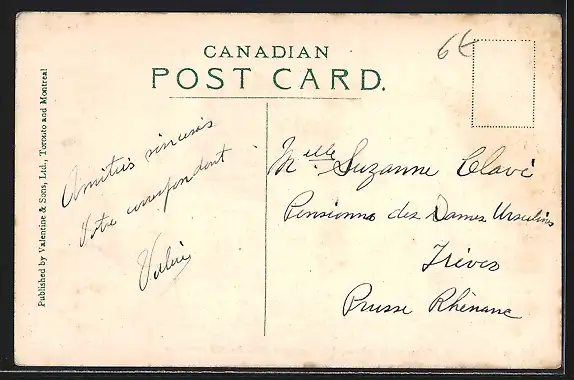 CANADIAN
POST CARD.
6€
Published by Valentine & Sons, Ltd., Toronto and Montreal
Amitiés sincères
Votre correspondant
Valérie
Melle Suzanne Clavé
Pensionna des Dames Ursulins
Trèves
Prusse Rhénane